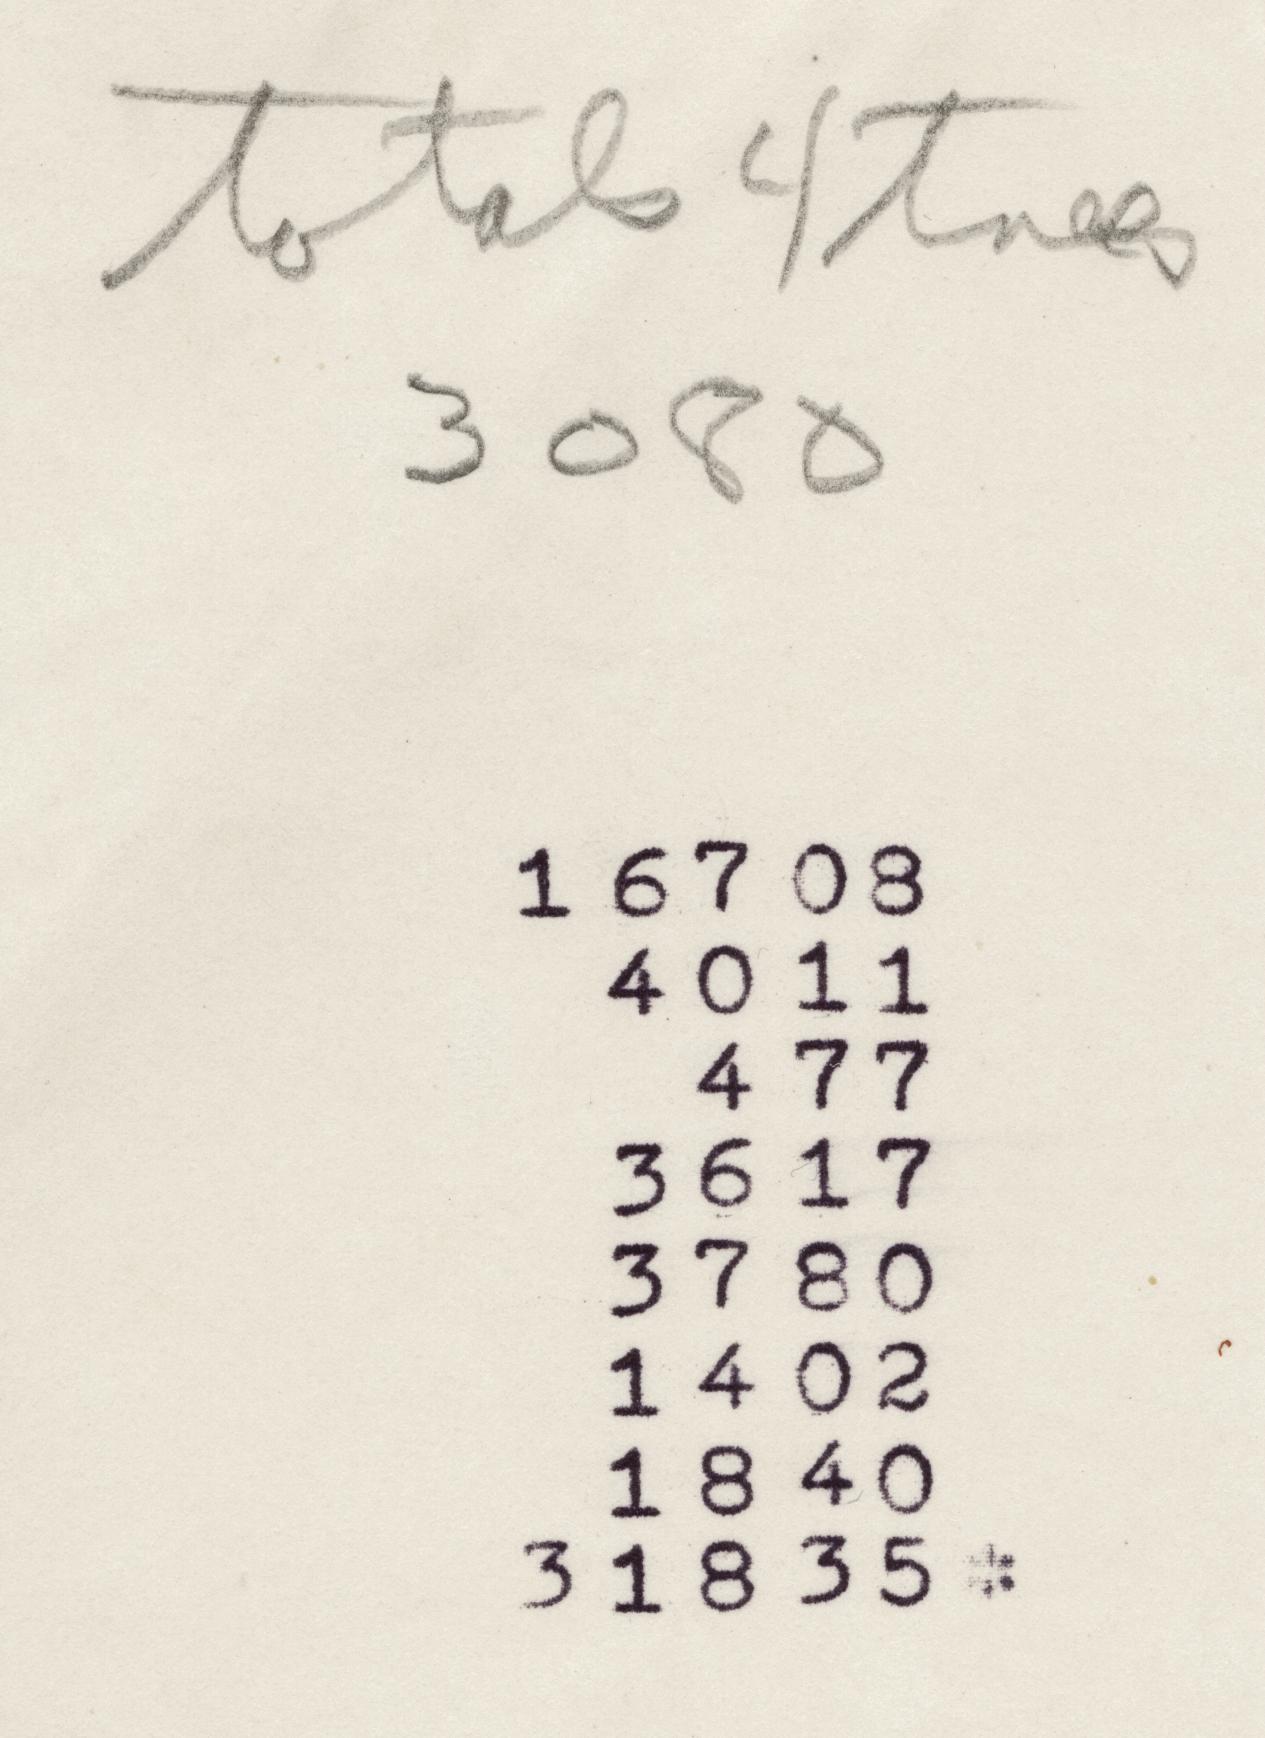 totals 4 trees
3080
16708
4011
477
3617
3780
1402
1840
31835*